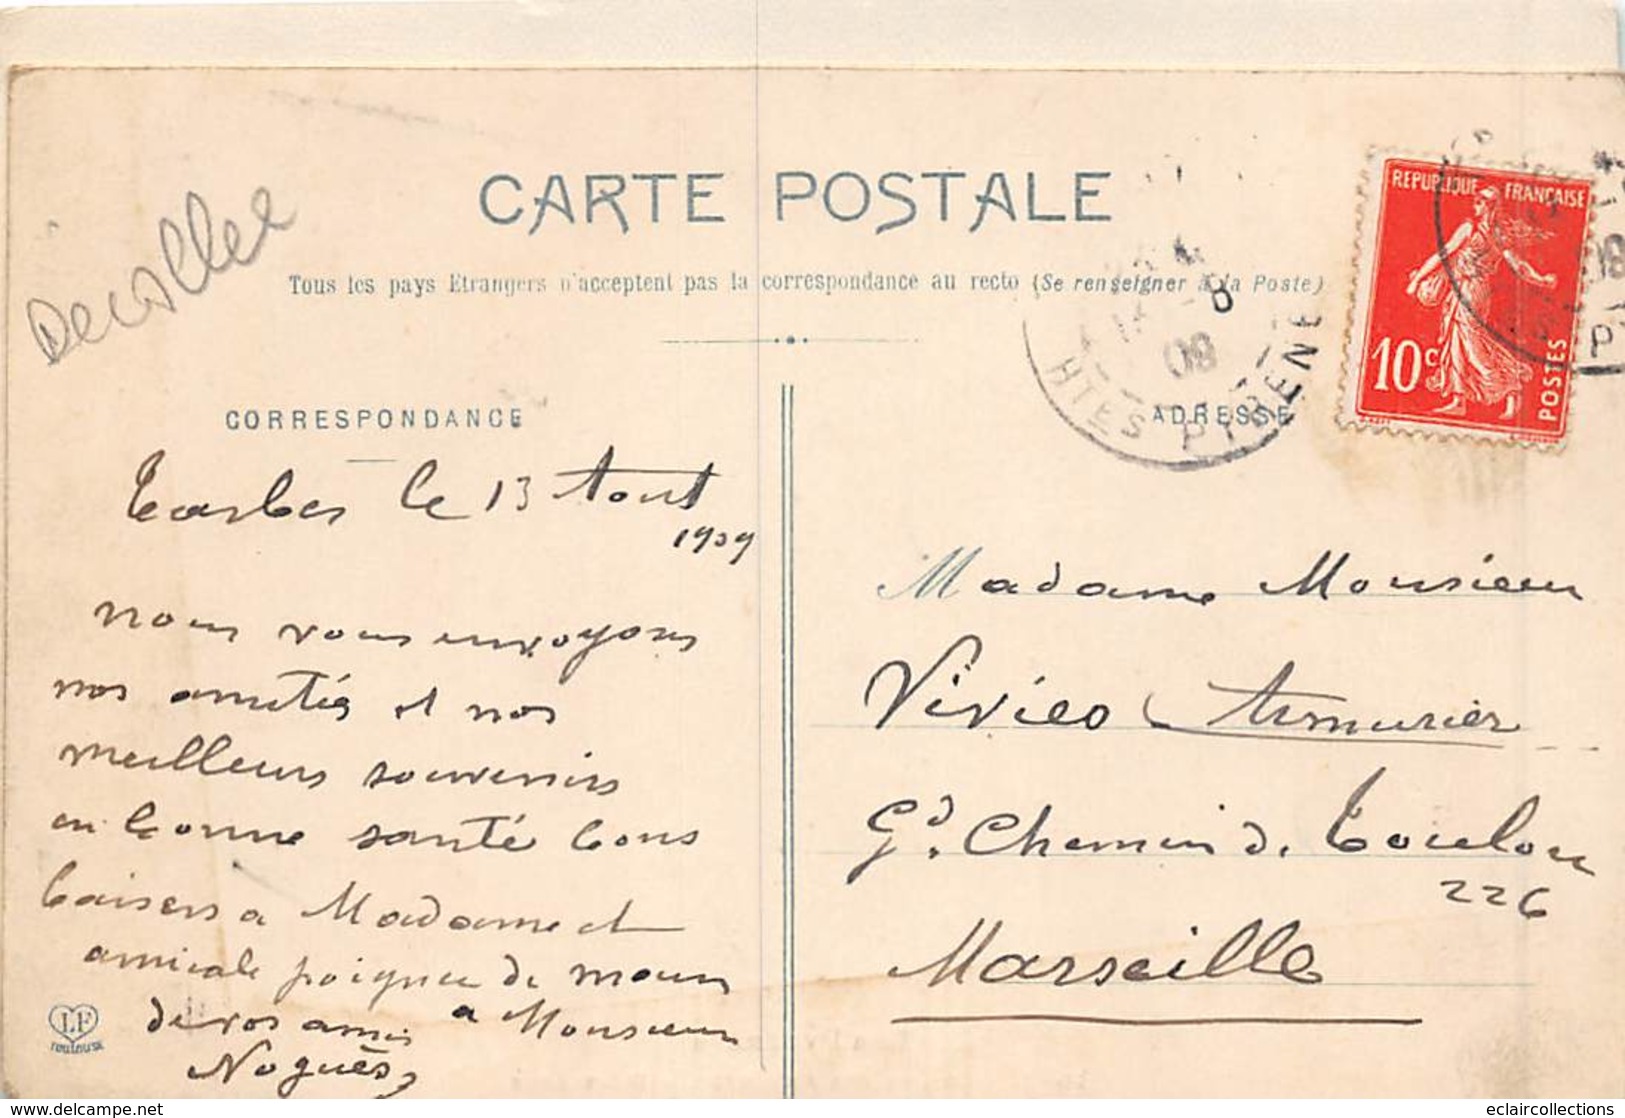 CARTE POSTALE
Tous les pays Etrangers n'acceptent pas la correspondance au recto (Se renseigner à la Poste)
REPUBLIQUE FRANÇAISE
10c
POSTES
09
HTES PYRENE
CORRESPONDANCE
ADRESSE
Tarbes le 13 Aout
1909
nous vous envoyons
nos amitiés et nos
meilleurs souvenirs
en bonne santé bons
baisers a Madame et
amicale poignee de main
de vos amis a Monsieur
Noguès
Madame Monsieur
Armurier
Gd. Chemin d. Toulon
226
Marseille
LF
Toulouse
https://www.delcampe.net
eclaircollections